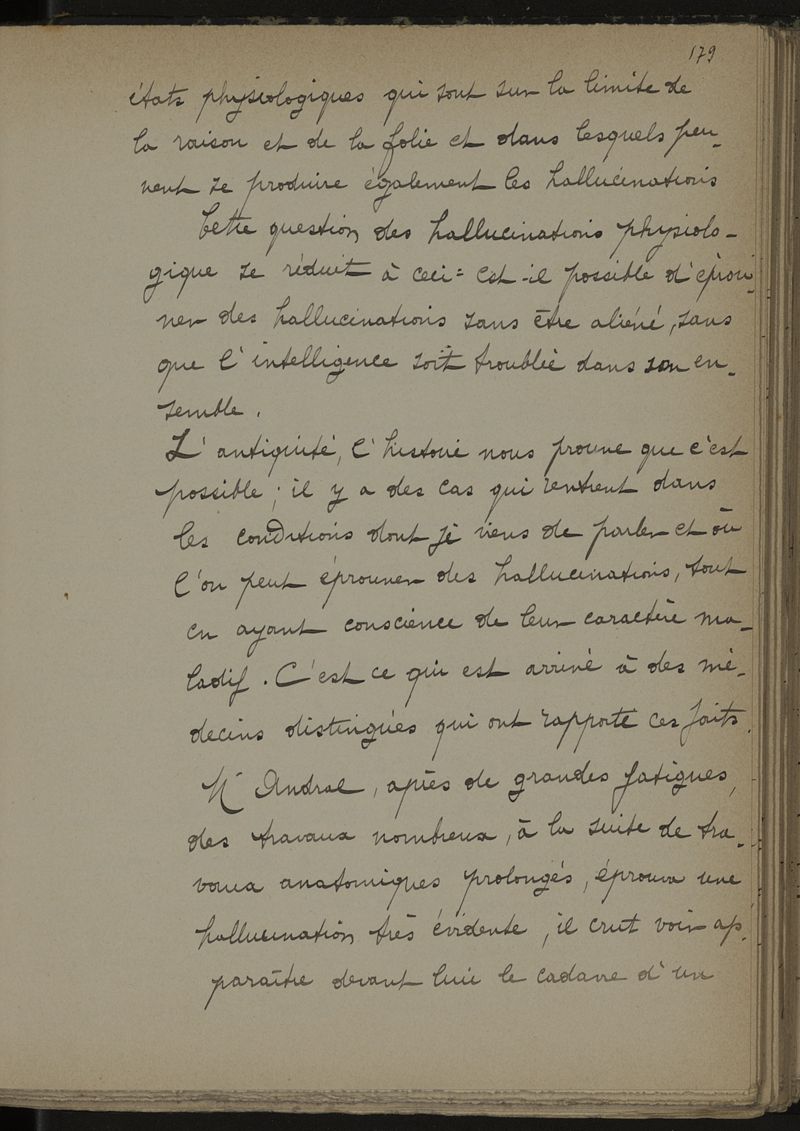 179
états physiologiques qui sont sur la limite de
la raison et de la folie et dans lesquels peu-
vent se produire également les hallucinations
Cette question des hallucinations physiolo-
gique se réduit à ceci = est-il possible d'éprou-
ver des hallucinations sans être aliéné, sans
que l'intelligence soit troublée dans son en-
semble.
L'antiquité, l'histoire nous prouve que c'est
possible ; il y a des cas qui rentrent dans
les conditions dont je viens de parler et où
l'on peut éprouver des hallucinations, tout
en ayant conscience de leur caractère ma-
ladif. C'est ce qui est arrivé à des mé-
decins distingués qui ont rapporté ces faits.
Mr Andral, après de grandes fatigues,
des travaux nombreux, à la suite de tra-
vaux anatomiques prolongés, éprouva une
hallucination très évidente, il crut voir ap-
paraître devant lui le cadavre d'un